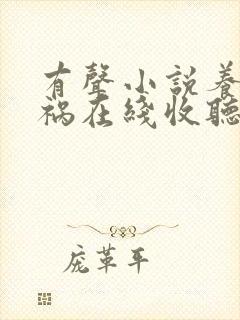 有聲小說養
禍在綫收聽
庞革平